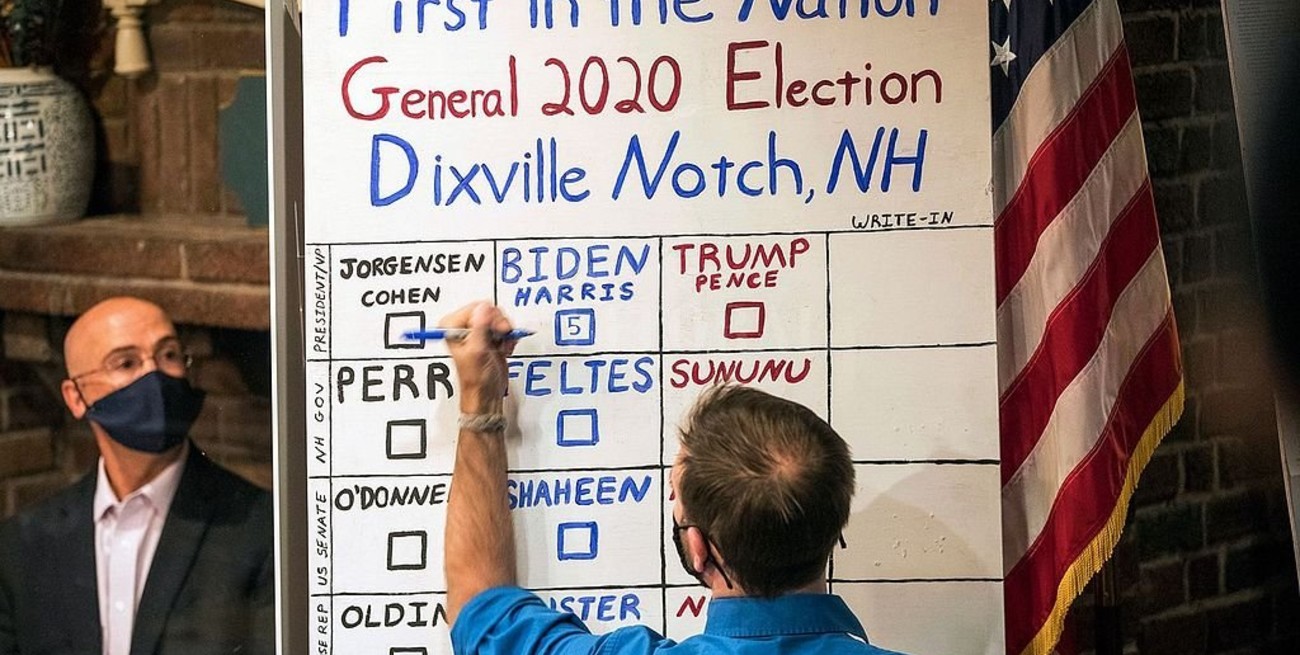 First in the Nation
General 2020 Election
Dixville Notch, NH
WRITE-IN
PRESIDENT/VP
JORGENSEN
COHEN
BIDEN
HARRIS
5
TRUMP
PENCE
NH GOV
PERR
FELTES
SUNUNU
US SENATE
O'DONNE
SHAHEEN
SE REP
OLDIN
STER
N